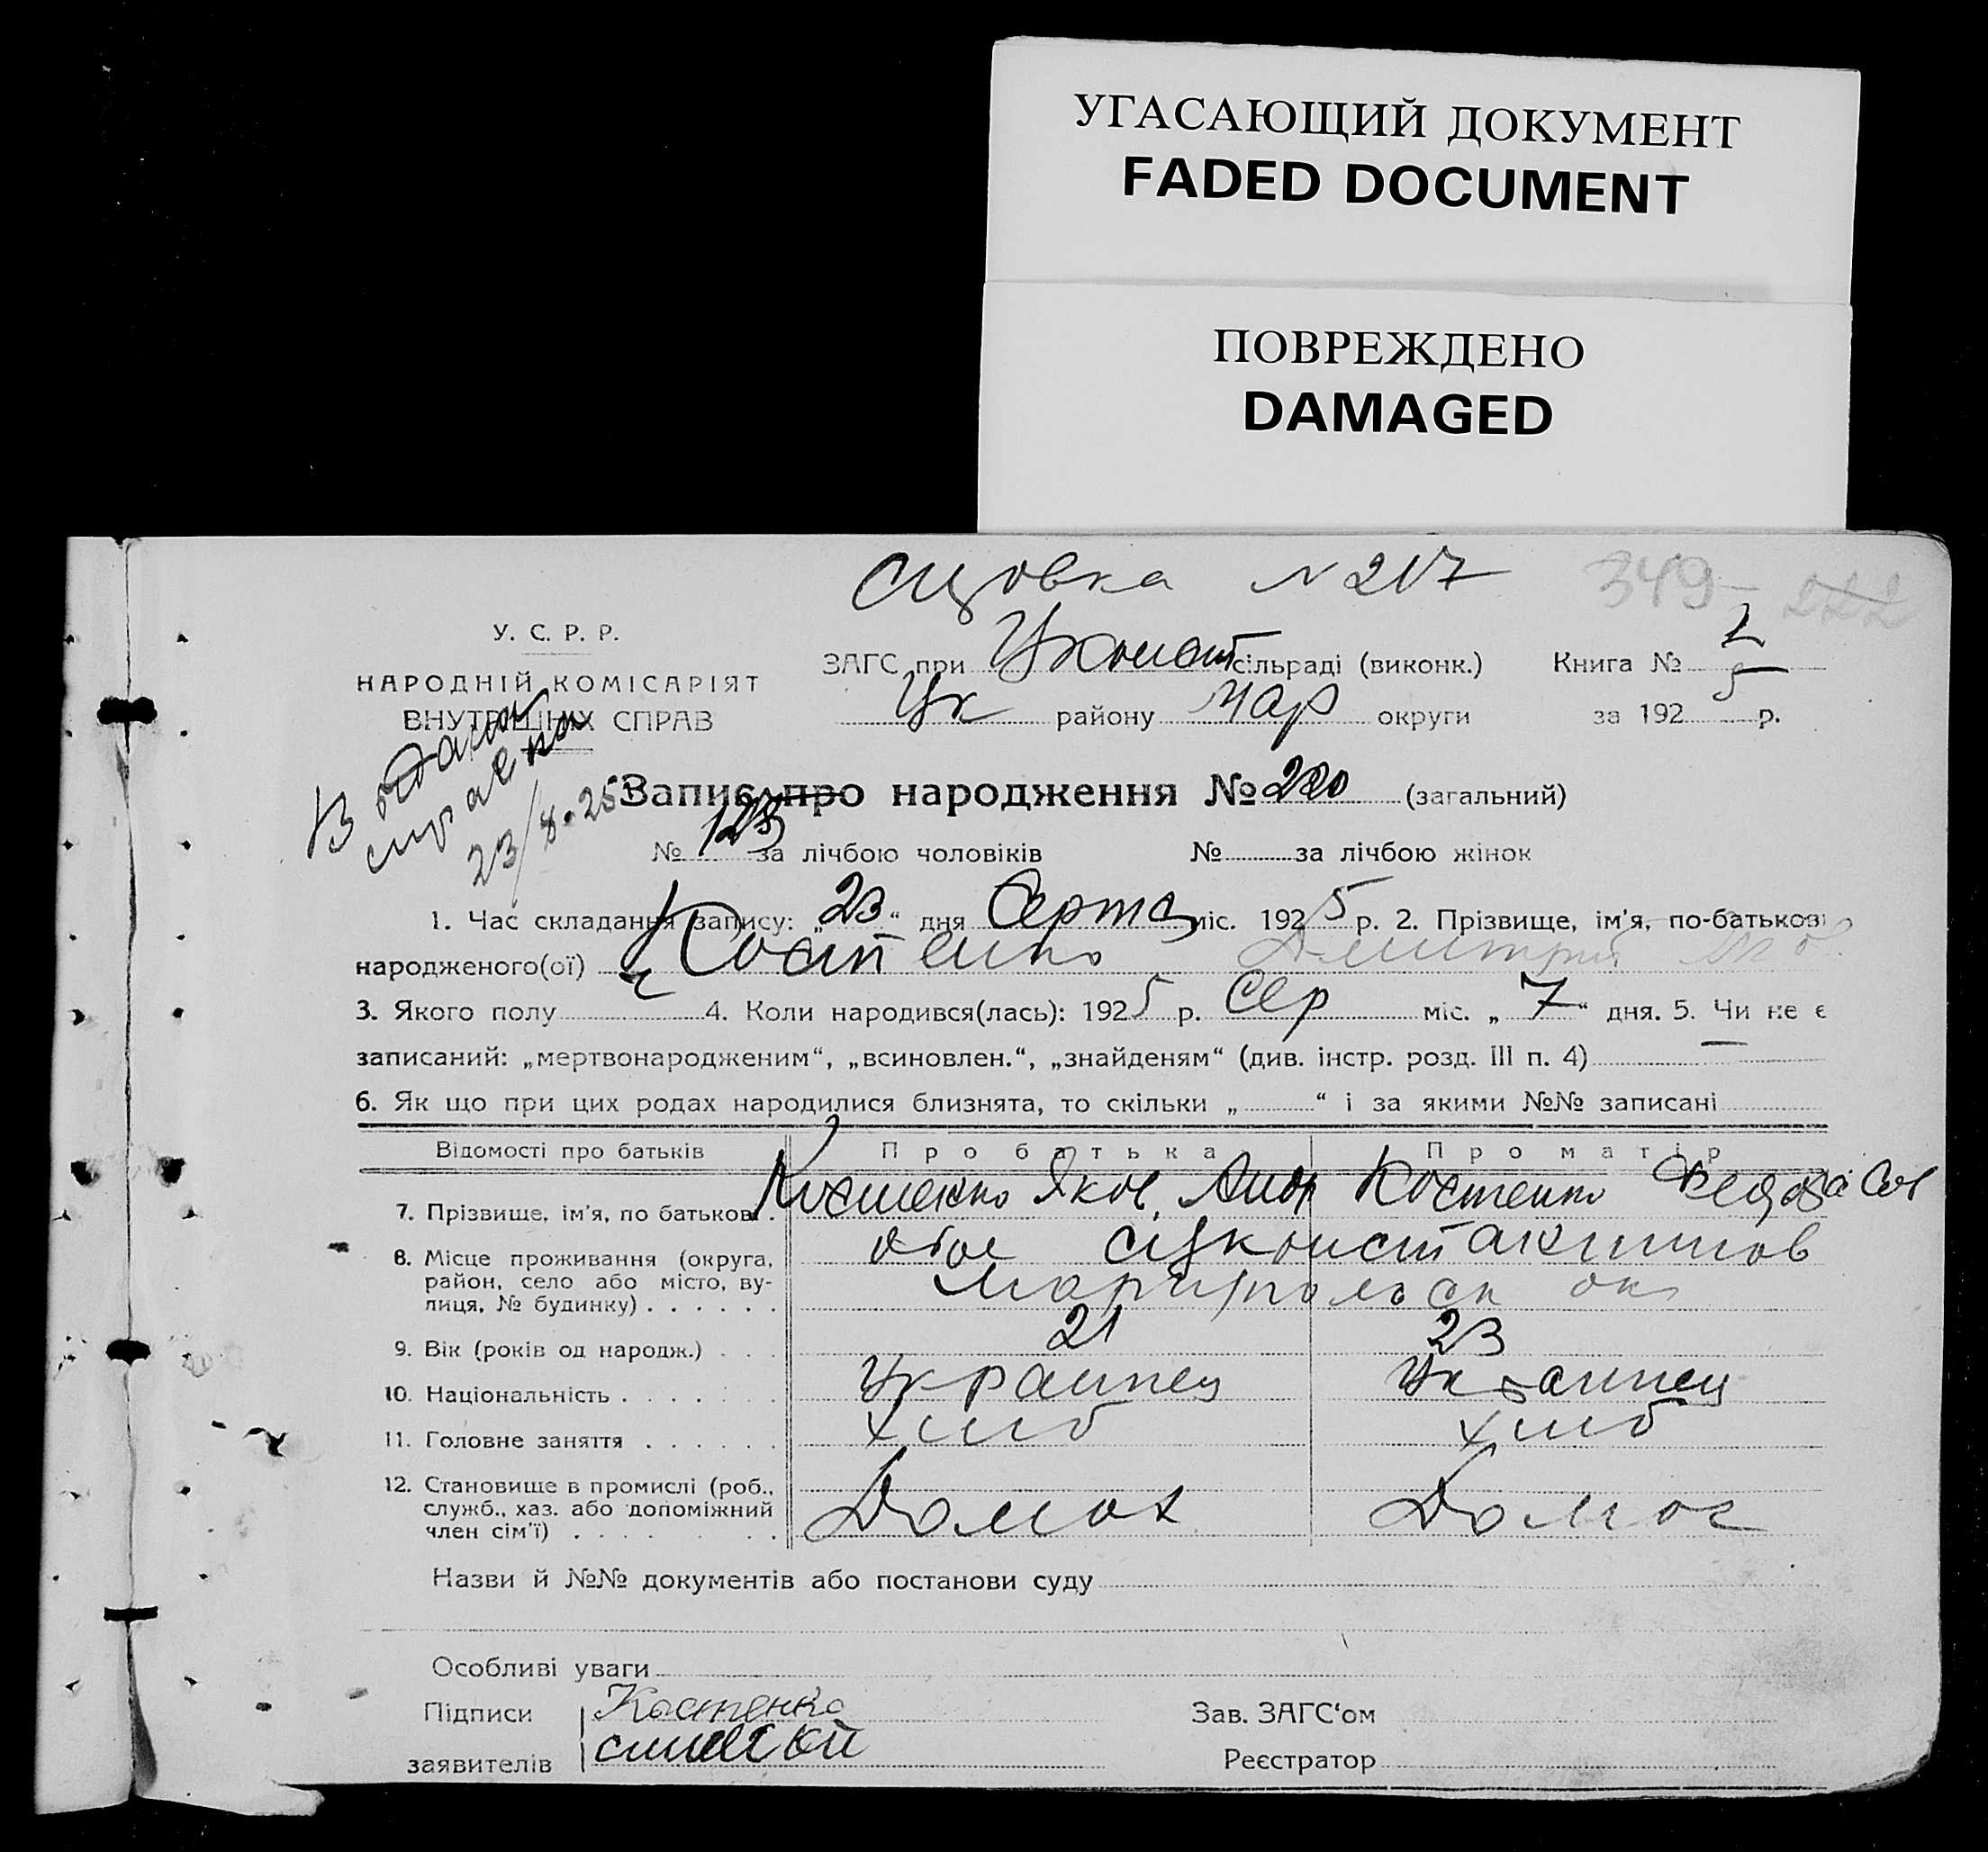 УГАСАЮЩИЙ ДОКУМЕНТ
FADED DOCUMENT
ПОВРЕЖДЕНО
DAMAGED
№ 217 349
У. С. Р. Р.
НАРОДНІЙ КОМІСАРІЯТ
ВНУТРІШНІХ СПРАВ
ЗАГС при сільраді (виконк.) Книга №
району Мар округи за 1925 р.
23/8.25
Запис про народження № 220 (загальний)
№ 123 за лічбою чоловіків № за лічбою жінок
1. Час складання запису: „23“ дня Серпня міс. 1925 р. 2. Прізвище, ім'я, по-батькові
народженого(ої) Костенко Дмитрий Яков.
3. Якого полу ч 4. Коли народився(лась): 1925 р. Сер міс. „7“ дня. 5. Чи не є
записаний: „мертвонародженим“, „всиновлен.“, „знайденям“ (див. інстр. розд. III п. 4) —
6. Як що при цих родах народилися близнята, то скільки „ “ і за якими №№ записані
Відомості про батьків Про батька Про матір
7. Прізвище, ім'я, по батькові. Костенко Яков Костенко
8. Місце проживання (округа,
район, село або місто, ву-
лиця, № будинку)
9. Вік (років од народж.) 21 23
10. Національність Украинец Украинец
11. Головне заняття хлиб хлиб
12. Становище в промислі (роб.,
служб., хаз. або допоміжний
член сім'ї) Домох Домог
Назви й №№ документів або постанови суду
Особливі уваги
Підписи Костенко Зав. ЗАГС‘ом
заявителів Реєстратор